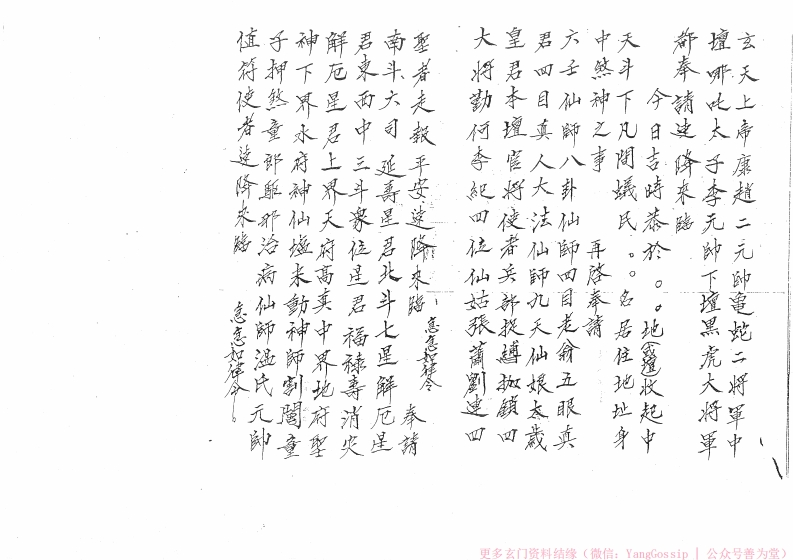 玄天上帝康趙二元帥亀蛇二將軍中
壇哪吒太子李元帥下壇黑虎大將軍
都奉請速降來臨
今日吉時恭於。。地靈壇收起中
天斗下凡間蟻民。。名居住地址身
中煞神之事　再啓奉請
六壬仙師八卦仙師四目老翁五眼真
君四目真人大法仙師九天仙娘太歲
皇君本壇官將使者兵部捉縛枷鎖四
大將勤何李紀四位仙姑張蕭劉連四
聖者走報平安速降來臨　急急如律令　奉請
南斗六司延壽星君北斗七星解厄星
君東西中三斗衆位星君福祿壽消灾
解厄星君上界天府高真中界地府聖
神下界水府神仙墟未動神師割闇童
子押煞童郎駈邪治病仙師温氏元帥
值符使者速降來臨　急急如律令。
更多玄门资料结缘（微信：YangGossip | 公众号善为堂）